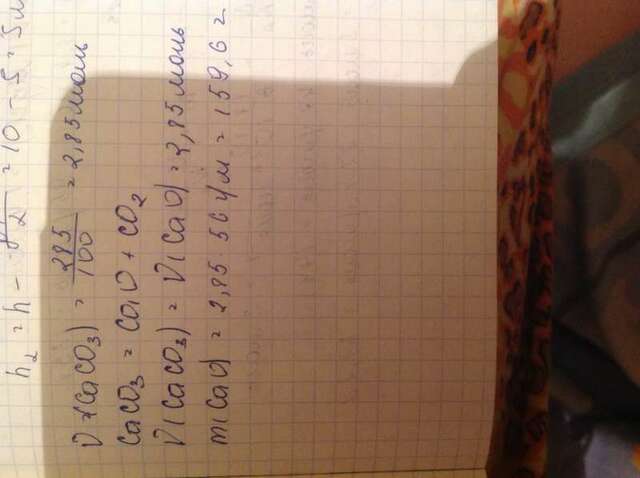 h₂ = h - = 10 - 5 = 5м
ν(CaCO₃) = 285/100 = 2,85 моль
CaCO₃ = CaO + CO₂
ν(CaCO₃) = ν(CaO) = 2,85 моль
m(CaO) = 2,85 56 г/м = 159,6 г